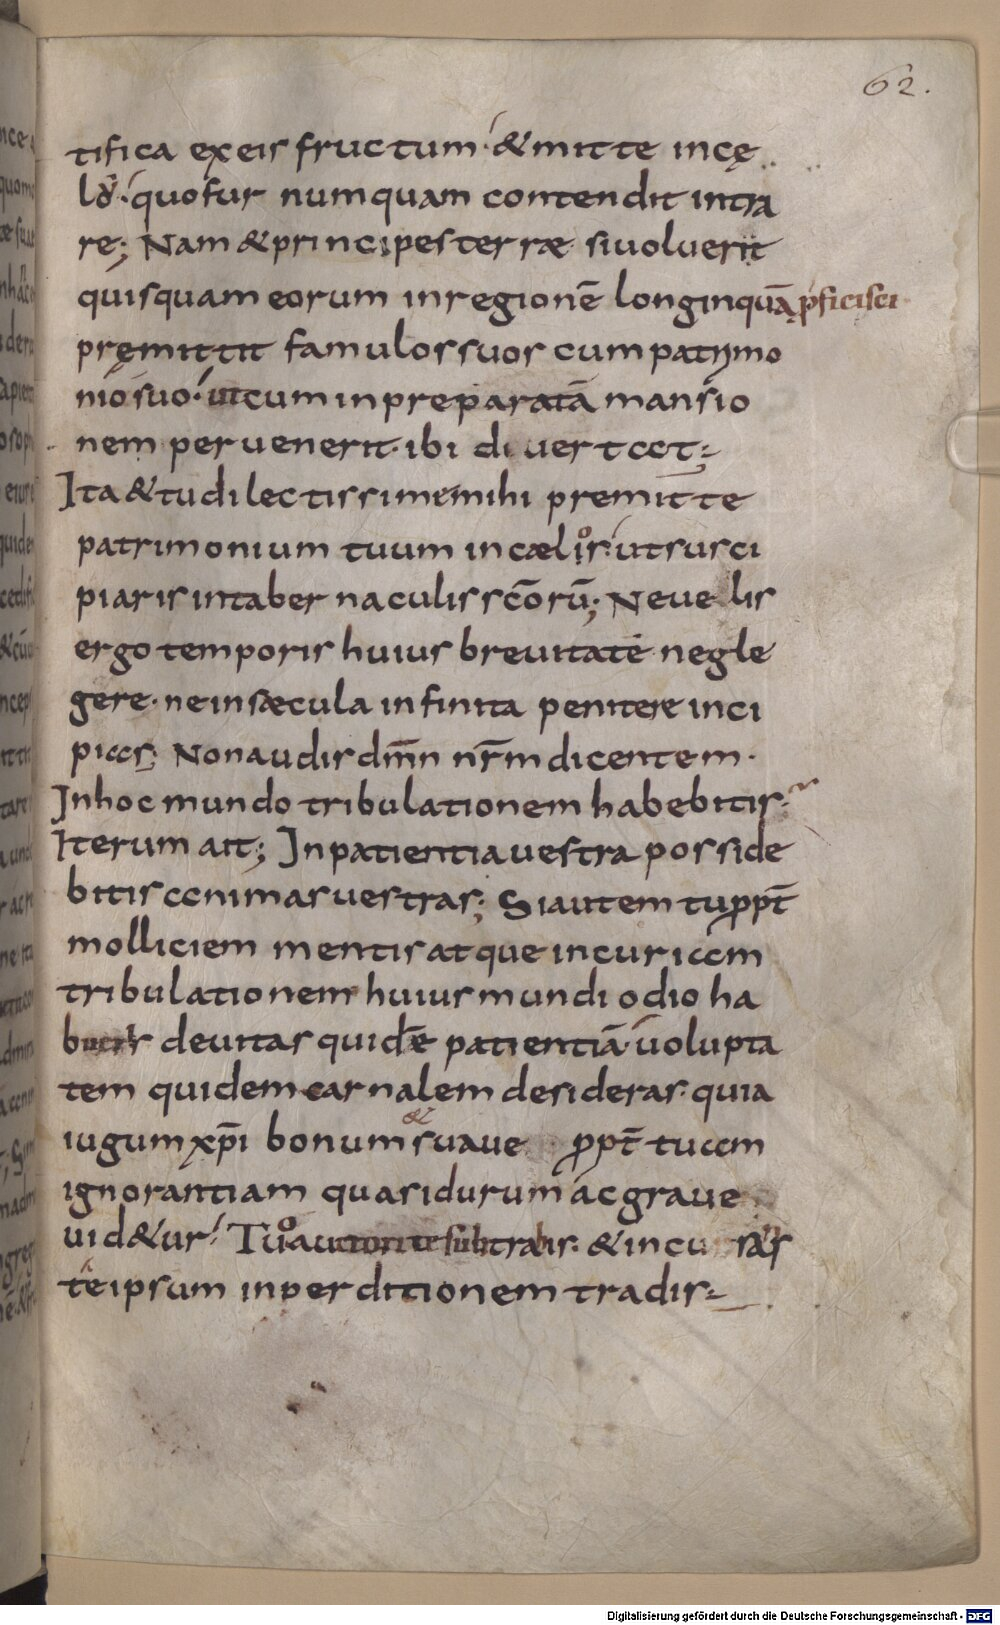 62.
tifica ex eis fructum· & mitte in cę
lo· quo fur numquam contendit intra
re; Nam & principes terræ si uoluerit
quisquam eorum in regionē longinquā p̄ficisci
pręmittit famulos suos cum patrimo
nio suo· ut cum in preparatā mansio
nem peruenerit· ibi diuertat;
Ita & tu dilectissime mihi premitte
patrimonium tuum in cælos· ut susci
piaris in tabernaculis sc̄orū; Ne uelis
ergo temporis huius breuitatē negle
gere· ne in sæcula infinita penitere inci
pias; Non audis dm̄n nr̄m dicentem·
In hoc mundo tribulationem habebitis·
Iterum ait; In patientia uestra posside
bitis animas uestras; Si autem tu ꝓpt̄
molliciem mentis atque incuriam
tribulationem huius mundi odio ha
deuitas quidē patientiā· uolupta
tem quidem carnalem desideras· quia
iugum xp̄i bonum & suaue ꝓpt̄ tuam
ignorantiam quasi durum ac graue
uid&ur· Tuo subtrahis· & incuras
te ipsum in perditionem tradis
Digitalisierung gefördert durch die Deutsche Forschungsgemeinschaft - DFG